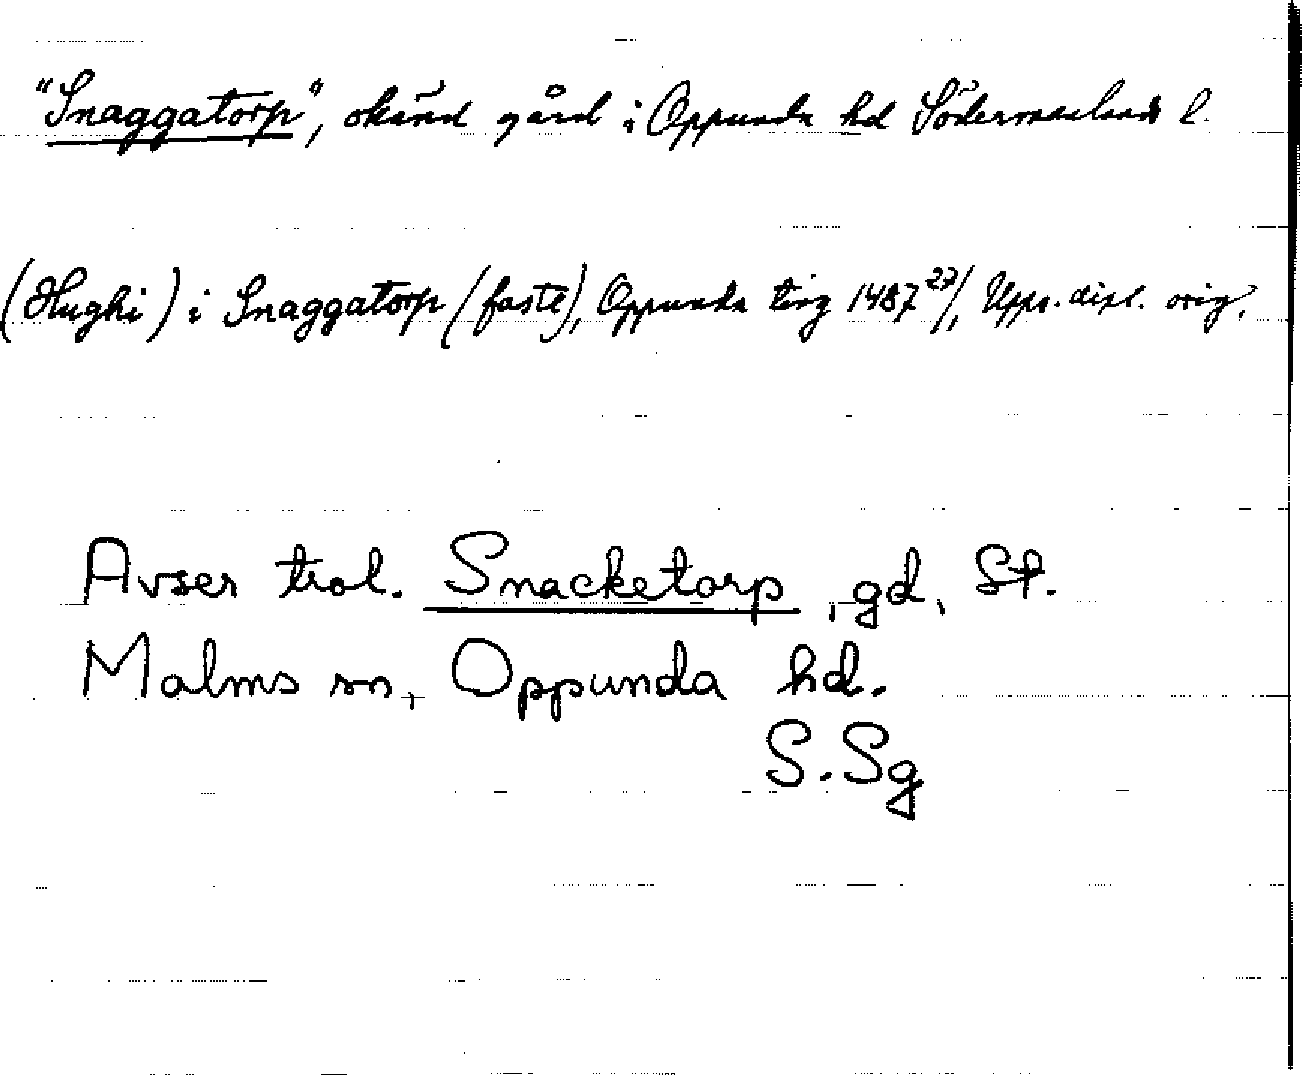 "Snaggatorp", okänd gård i Oppunda hd Södermanlands l.
(Hughi) i Snaggatorp (faste), Oppunda ting 1487 27/, Upps. dipl. orig.
Avser trol. Snacketorp, gd, St.
Malms sn, Oppunda hd.
S.Sg